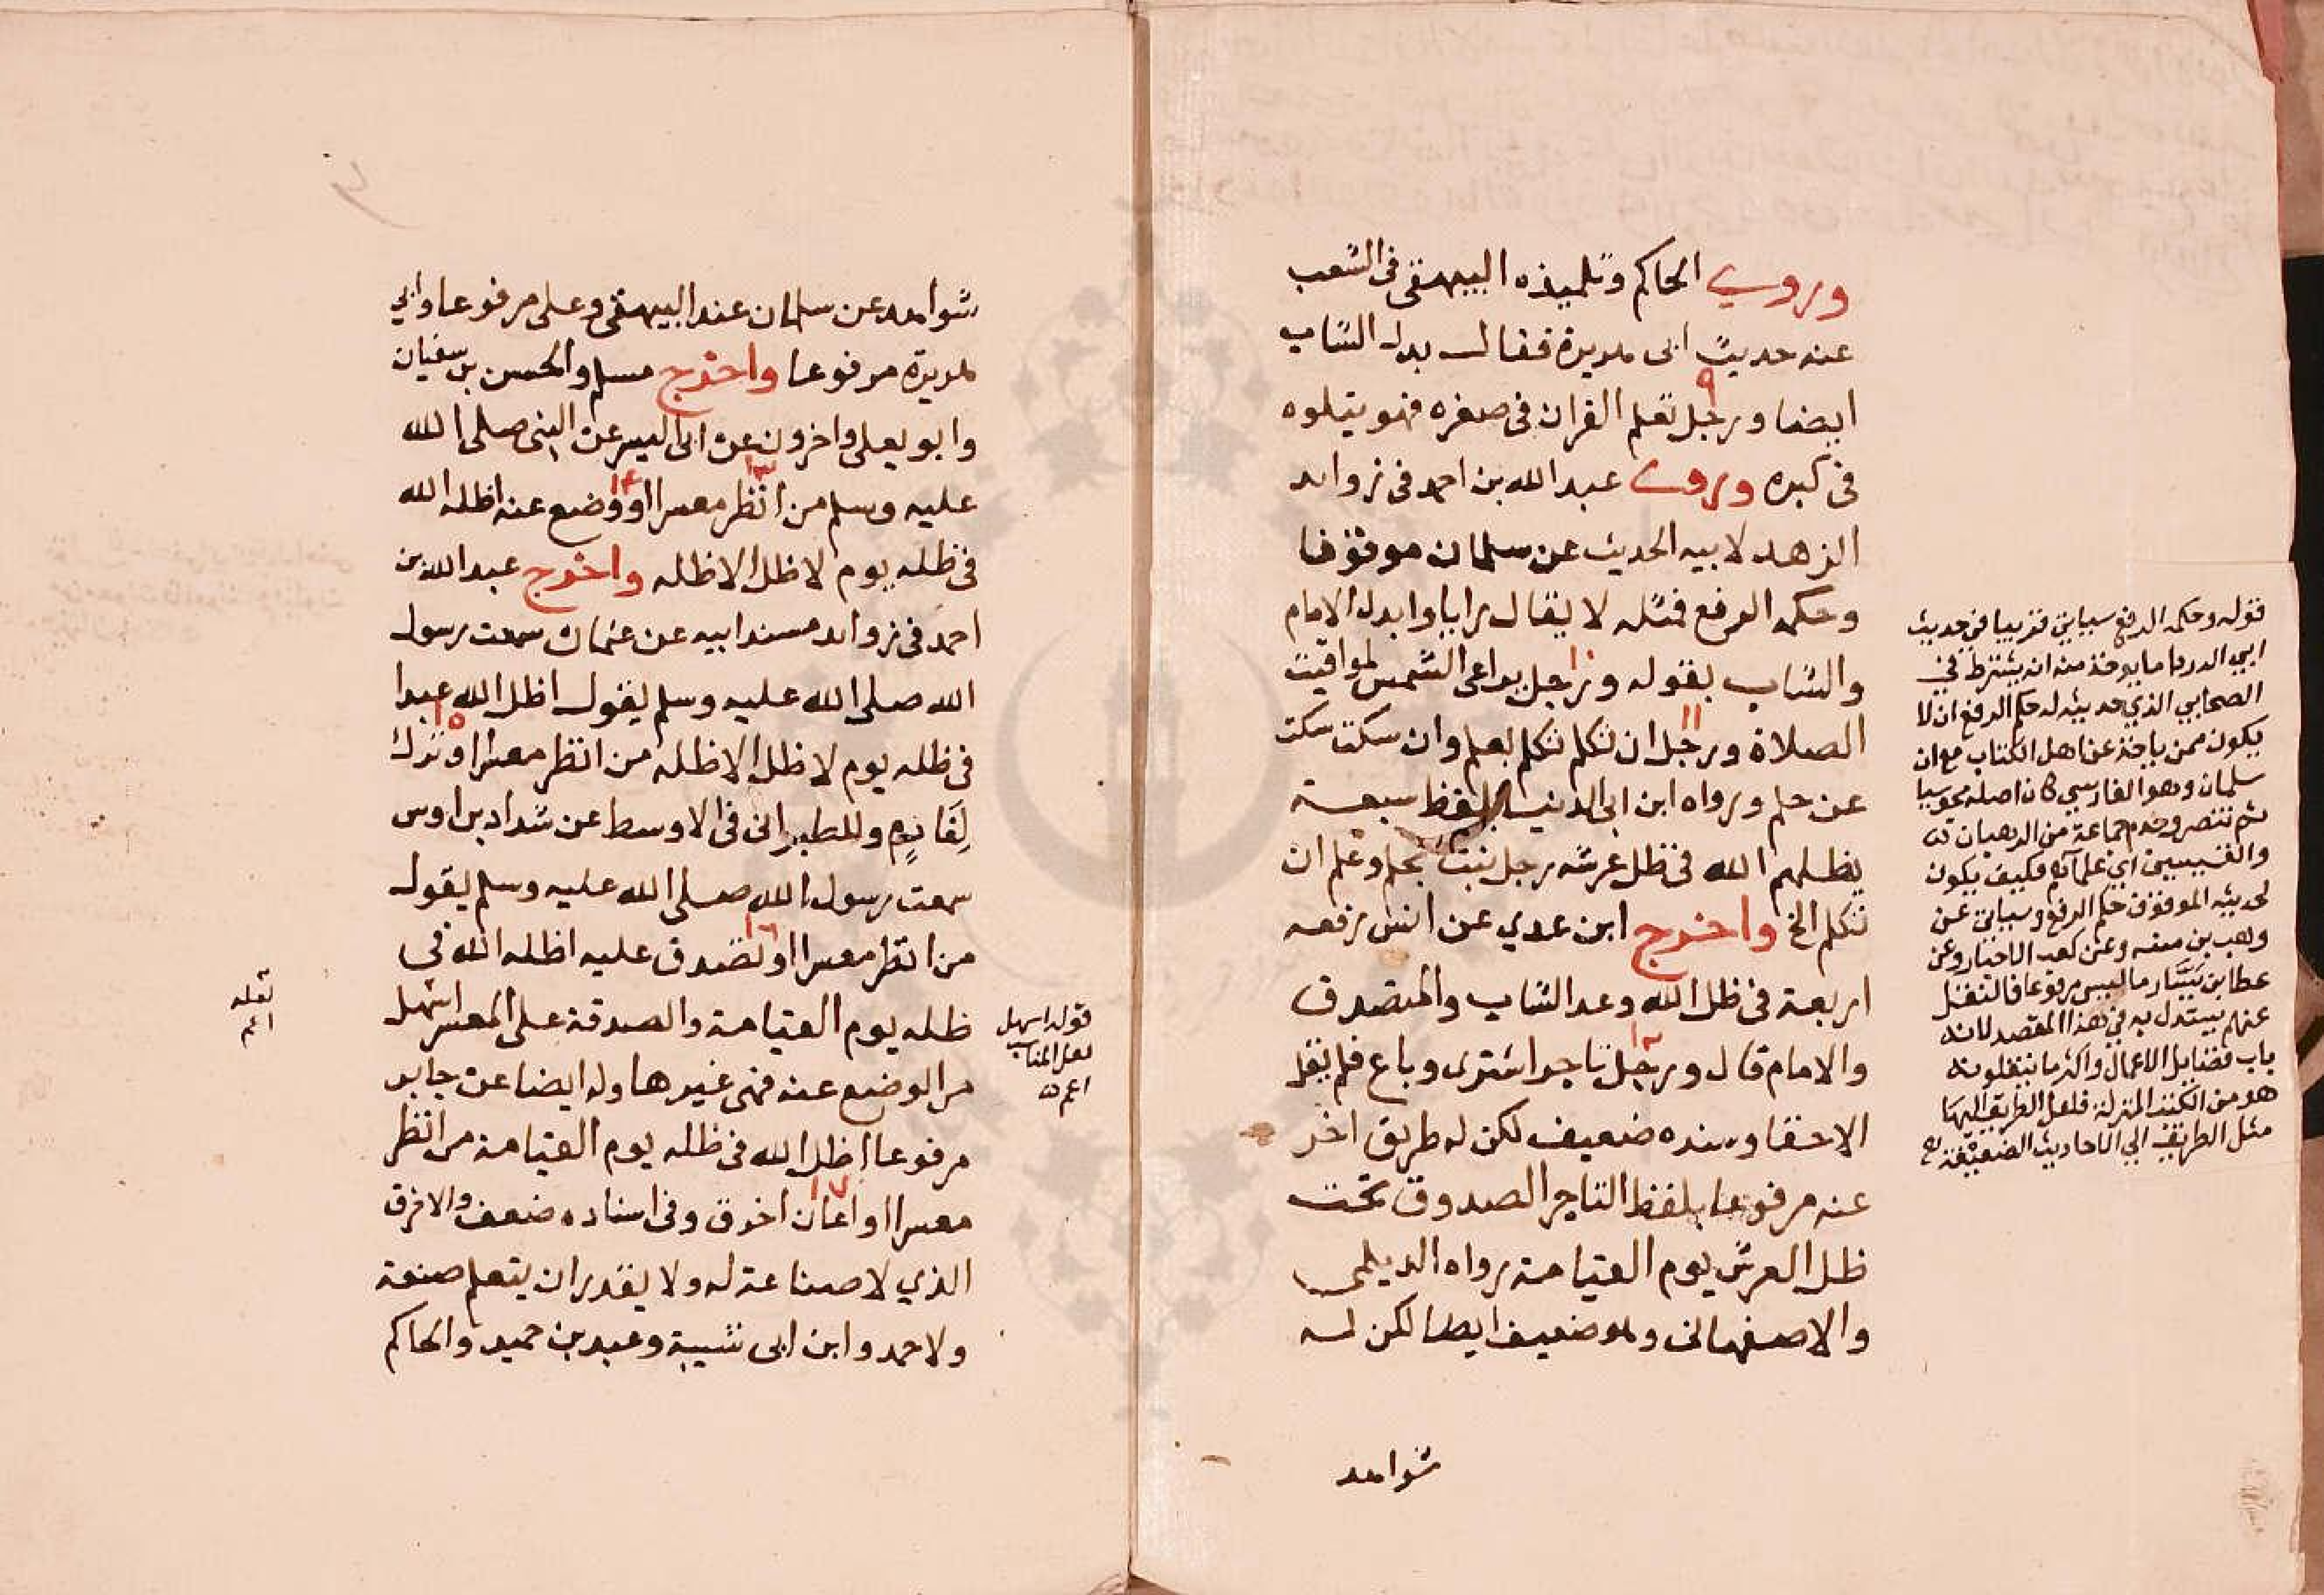 وروي الحاكم وتلميذه البيهقى فى الشعب
عنه حديث ابى هريرة فقال بدل الشاب
٩
ايضا ورجل تعلم القران فى صغره فهو يتلوه
فى كبره وروى عبد الله بن احمد فى زوائد
الزهد لابيه الحديث عن سلمان موقوفا
وحكمه الرفع فمثله لا يقال رايا وابدل الامام
١٠
والشاب بقوله ورجل يراعى الشمس لمواقيت
١١
الصلاة ورجل ان تكلم تكلم بعلم وان سكت سكت
عن حلم ورواه ابن ابى الدنيا بلفظ سبعة
يظلهم الله فى ظل عرشه رجل بعلم وعلم ان
تكلم الخ واخرج ابن عدي عن انس رفعه
اربعة فى ظل الله وعد الشاب والمتصدق
١٢
والامام قال ورجل تاجر اشترى وباع فلم يقل
الاحقا وسنده ضعيف لكن له طريق اخر
عنه مرفوعا بلفظ التاجر الصدوق تحت
ظل العرش يوم القيامة رواه الديلمى
والاصفهانى وهو ضعيف ايضا لكن له
شواهد
قوله وحكمه الرفع سياتي قريبا في حديث
ابي الدردا ما يوخذ منه ان يشترط في
الصحابي الذي حديثه له حكم الرفع ان لا
يكون ممن ياخذ عن اهل الكتاب مع ان
سلمان وهو الفارسي كان اصله مجوسيا
ثم تنصر وخدم جماعة من الرهبان
والقسيسين اي علمائهم فكيف يكون
لحديثه الموقوف حكم الرفع وسياتي عن
وهب بن منبه وعن كعب الاحبار وعن
عطا بن يسار ما ليس مرفوعا فالنقل
عنهم يستدل به في هذا المقصد لانه
باب فضايل الاعمال واكثر ما ينقلونه
هو من الكتب المنزلة فلعل الطريق اليها
مثل الطريق الي الاحاديث الضعيفة
شواهد عن سلمان عند البيهقى وعلى مرفوعا وابي
هريرة مرفوعا واخرج مسلم والحسن بن سفيان
وابو يعلى واخرون عن ابى اليسر عن النبى صلى الله
١٣ ١٤
عليه وسلم من انظر معسرا او وضع عنه اظله الله
فى ظله يوم لا ظل الا ظله واخرج عبد الله بن
احمد فى زوائد مسند ابيه عن عثمان سمعت رسول
الله صلى الله عليه وسلم يقول اظل الله عبدا
١٥
فى ظله يوم لا ظل الا ظله من انظر معسرا او ترك
لِغَارِمٍ وللطبرانى فى الاوسط عن شداد بن اوس
سمعت رسول الله صلى الله عليه وسلم يقول
١٦
من انظر معسرا او تصدق عليه اظله الله فى
ظله يوم القيامة والصدقة على المعسر اسهل
من الوضع عنه فهى غيرها وله ايضا عن جابر
مرفوعا اظل الله فى ظله يوم القيامة من انظر
١٧
معسرا او اعان اخرق وفى اسناده ضعف والاخرق
الذي لا صناعة له ولا يقدر ان يتعلم صنعة
ولاحمد وابن ابى شيبة وعبد بن حميد والحاكم
قوله اسهل
لعل المناسب
اعم
لعله
اعم